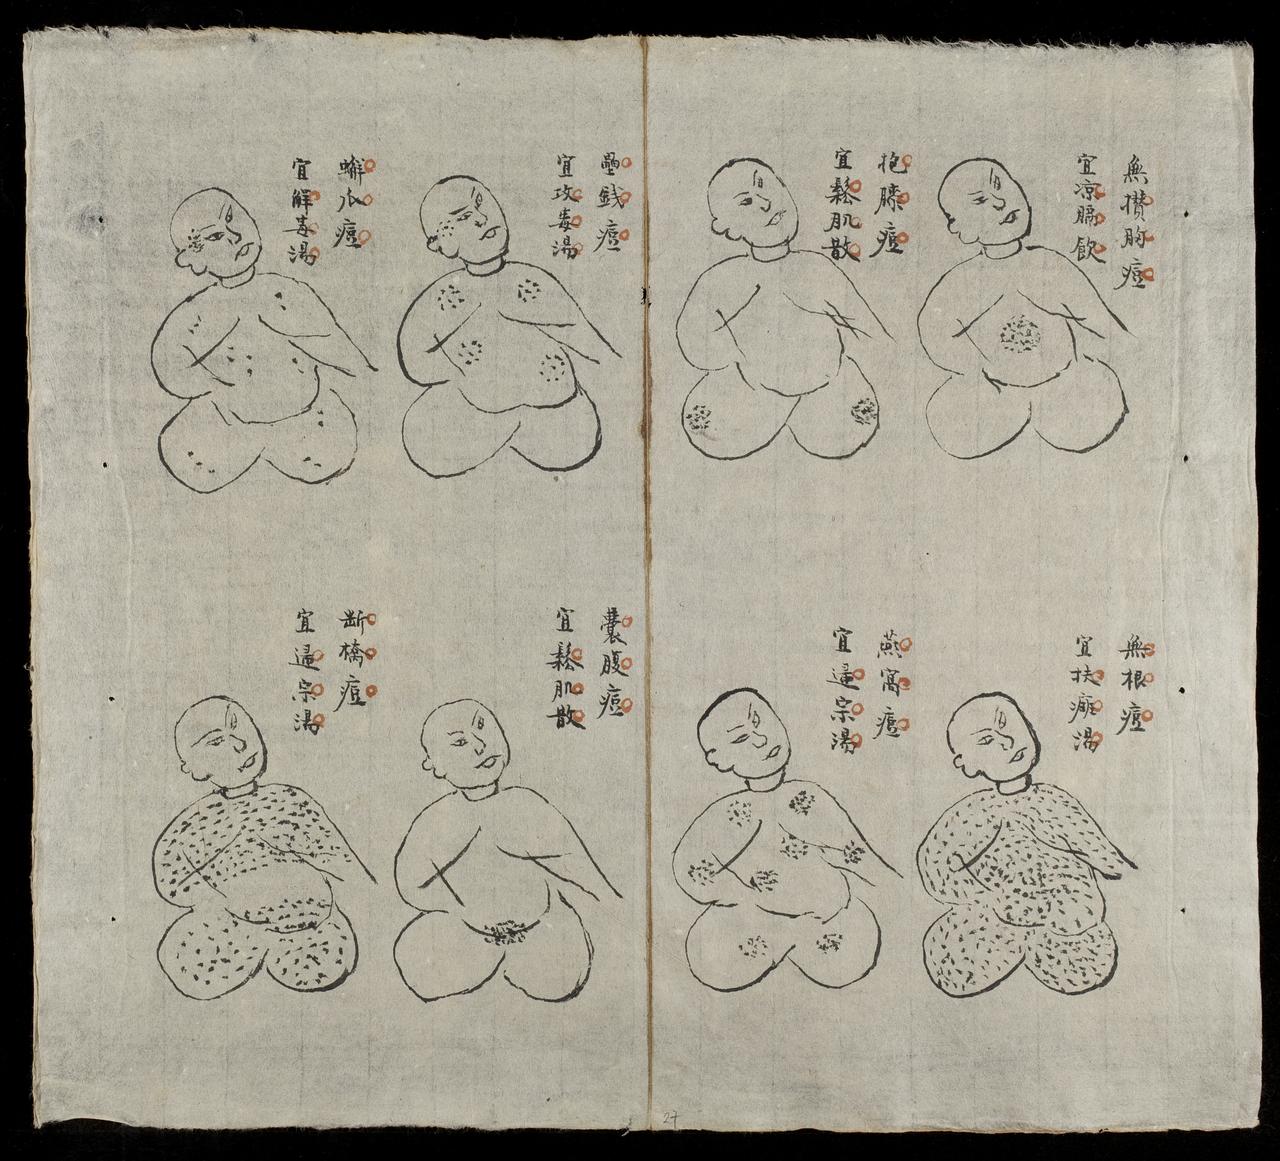 無攢胸痘
宜涼膈飲
抱膝痘
宜鬆肌散
無根痘
宜扶痘湯
燕窩痘
宜返宗湯
疊錢痘
宜攻毒湯
蟹爪痘
宜解毒湯
囊腹痘
宜鬆肌散
斷橋痘
宜返宗湯
27